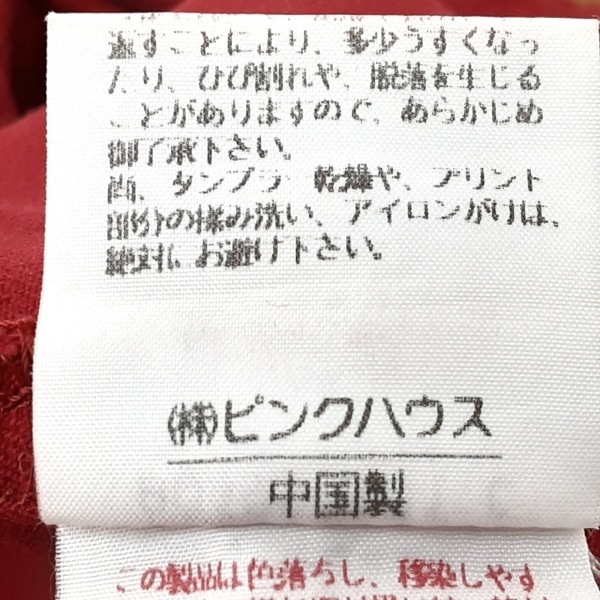 返すことにより、多少うすくなっ
たり、ひび割れや、脱落を生じる
ことがありますので、あらかじめ
御了承下さい。
尚、タンブラー乾燥や、プリント
部分の揉み洗い、アイロンがけは、
絶対にお避け下さい。
(株)ピンクハウス
中国製
この製品は色落ちし、移染しやす